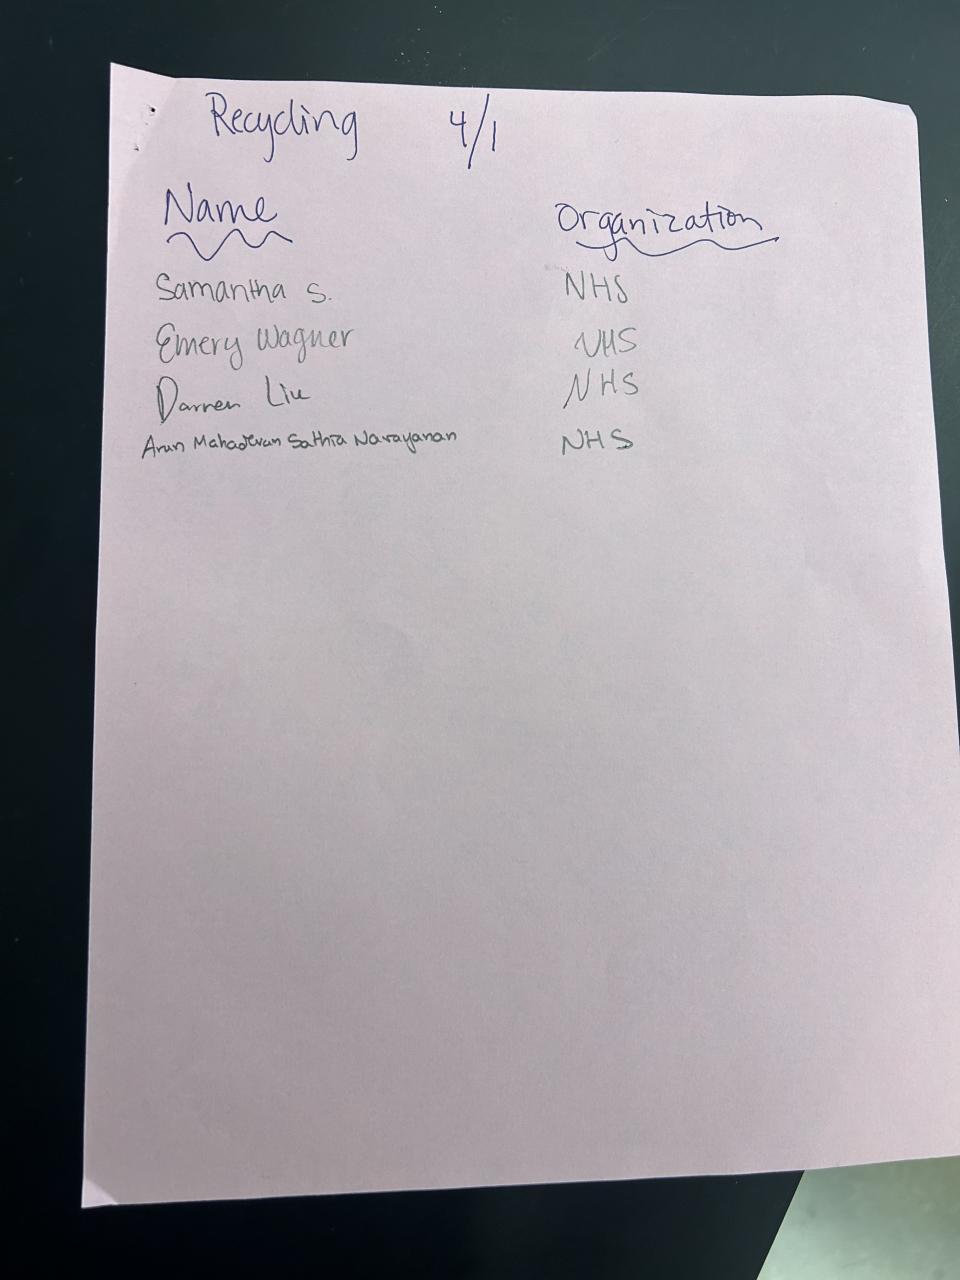 Recycling 4/1
Name Organization
Samantha S. NHS
Emery Wagner NHS
Darren Liu NHS
Arun Mahadevan Sathia Narayanan NHS